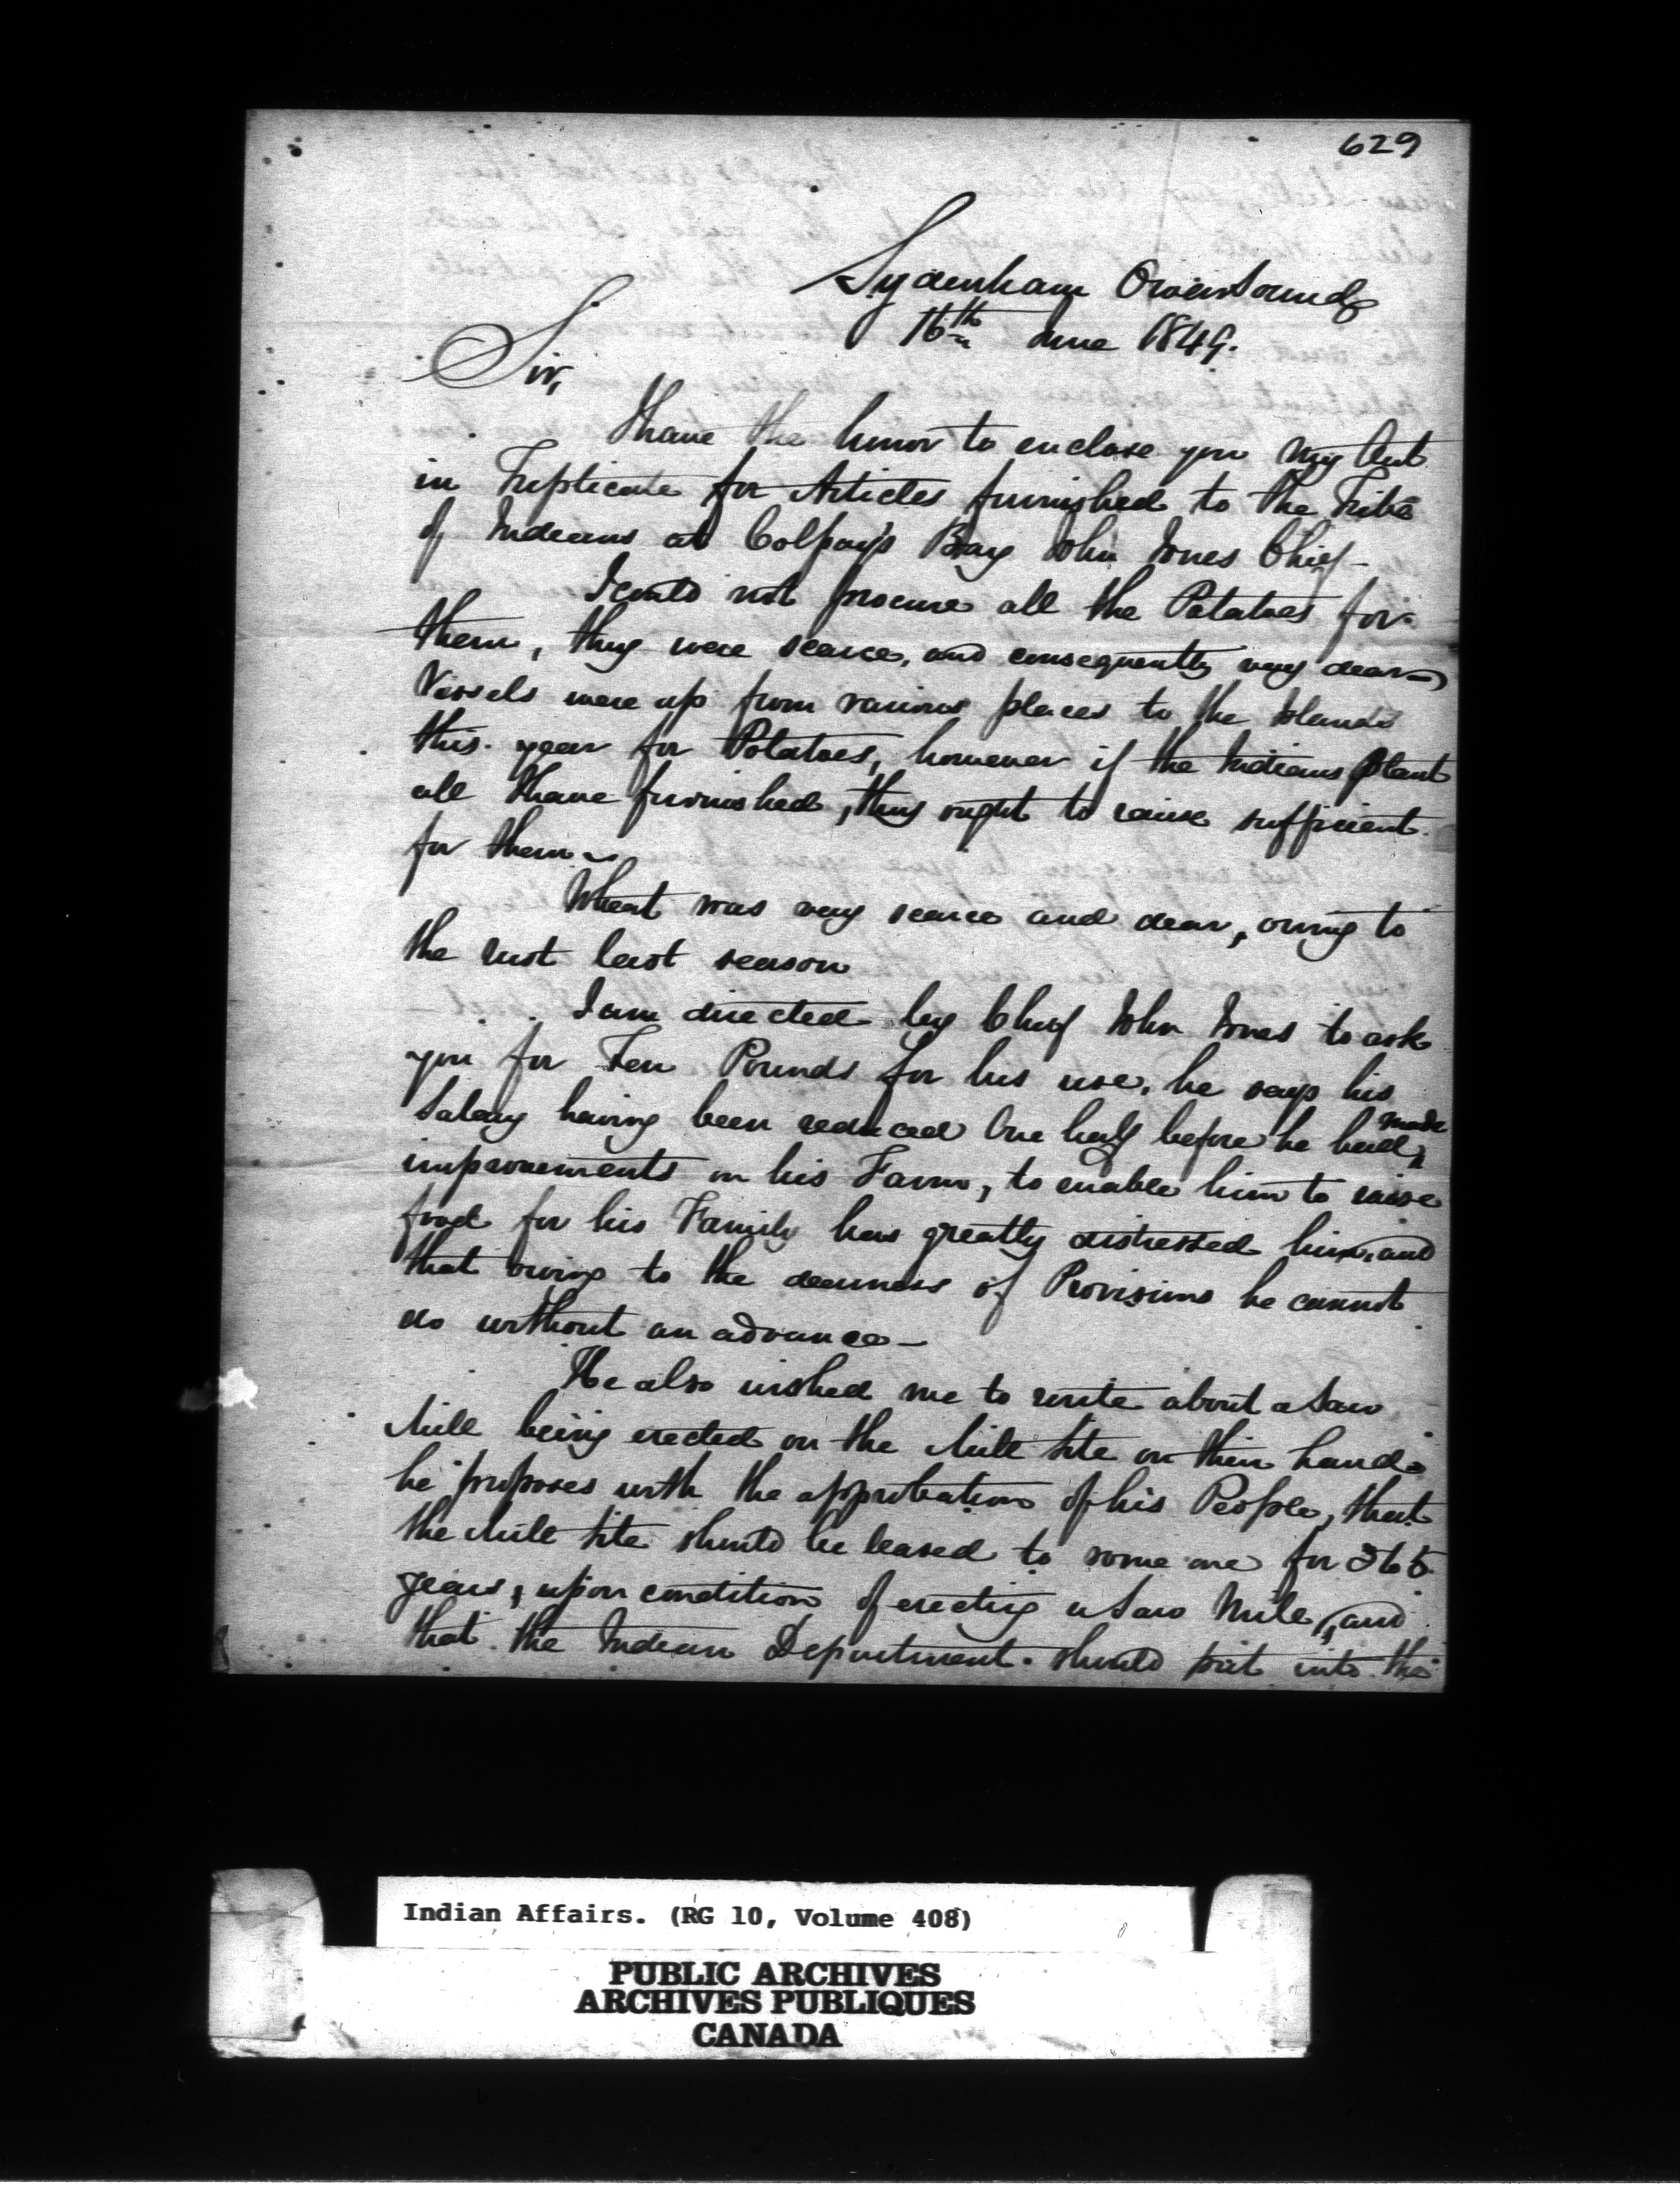 629
Sydenham Owen Sound
16th June 1849.
Sir,
I have the honor to enclose you my Acct
in Triplicate for Articles furnished to the Tribe
of Indians at Colpoys Bay John Jones Chief—
I could not procure all the Potatoes for
them, they were scarce, and consequently very dear
Vessels were up from various places to the Islands
this year for Potatoes, however if the Indians plant
all I have furnished, they ought to raise sufficient
for them—
Wheat was very scarce and dear, owing to
the rust last season
I am directed by Chief John Jones to ask
you for Ten Pounds for his use, he says his
Salary having been reduced One half before he had made
improvements on his Farm, to enable him to raise
food for his Family has greatly distressed him, and
that owing to the dearness of Provisions he cannot
do without an advance—
He also wished me to write about a Saw
Mill being erected on the Mill Site on their Land
he proposes with the approbation of his People, that
the Mill Site should be leased to some one for 365
years, upon condition of erecting a Saw Mill, and
that the Indian Department should put into the
Indian Affairs. (RG 10, Volume 408)
PUBLIC ARCHIVES
ARCHIVES PUBLIQUES
CANADA